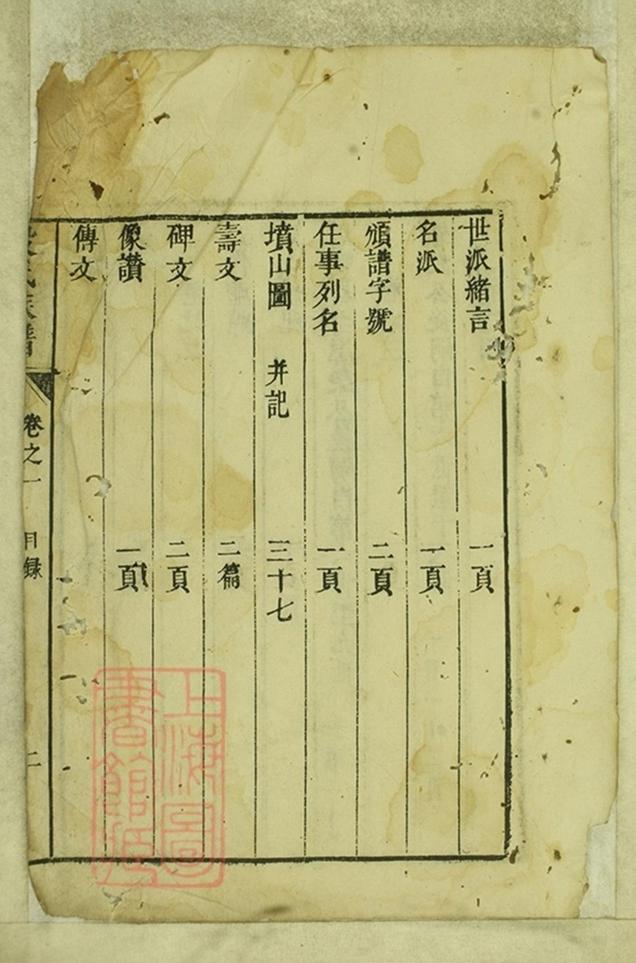 世派緒言 一頁
名派 一頁
頒譜字號 二頁
任事列名 一頁
墳山圖 并記 三十七
壽文 二篇
碑文 二頁
像讃 一頁
傳文
氏族譜 卷之一 目録 二
上海圖書館藏